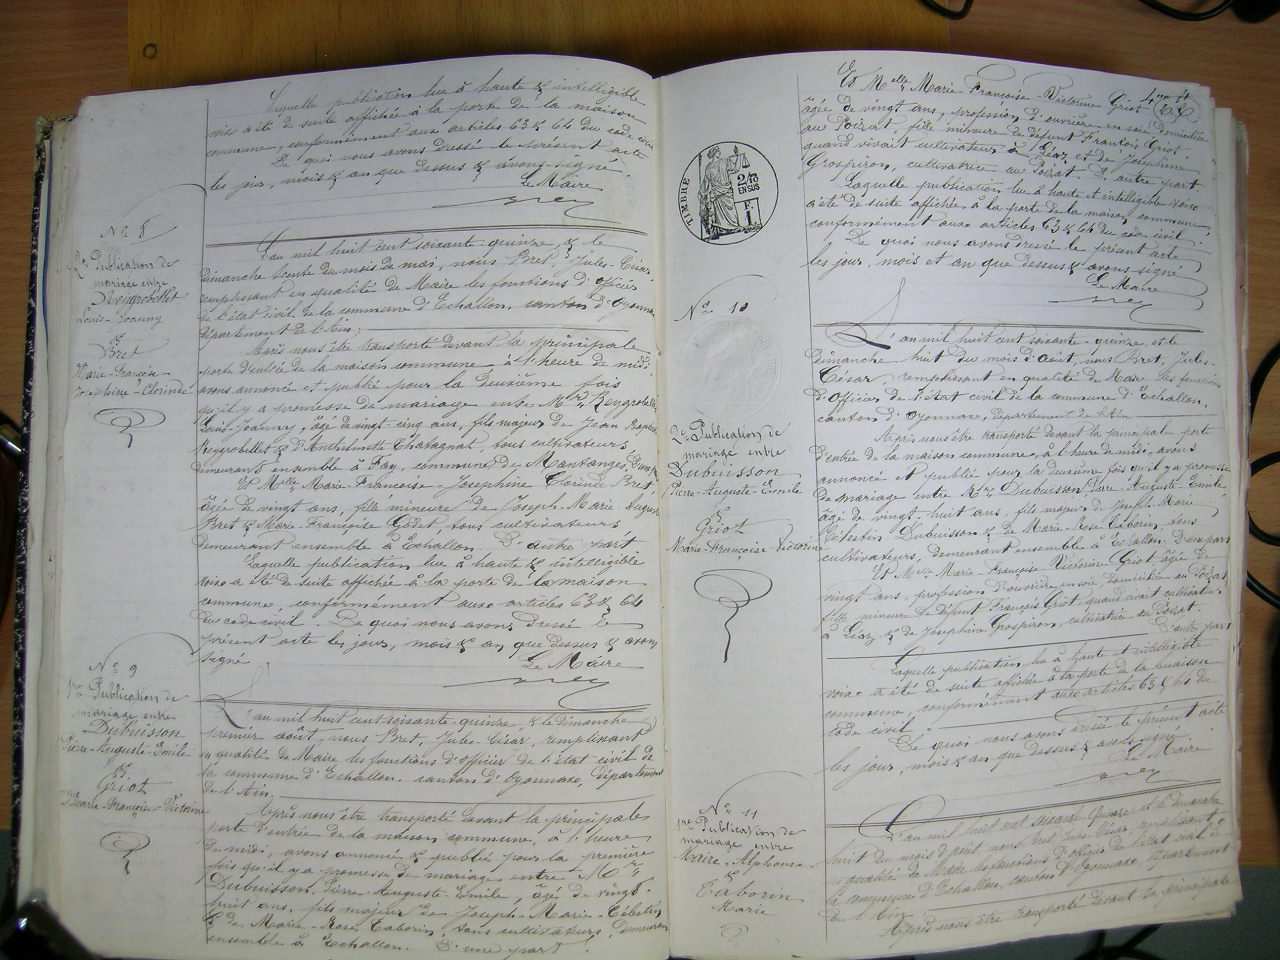 Laquelle publication lue à haute & intelligible
voix a été de suite affichée à la porte de la maison
commune, conformément aux articles 63 & 64 du code civil
De quoi nous avons dressé le présent acte
les jour, mois & an que dessus & avons signé.
Le Maire
Bret
No 8
2e Publication de
mariage entre
Louis-Joanny
&
Bret
Marie-Françoise-
Joséphine-Clorinde
L'an mil huit cent soixante-quinze, & le
dimanche trente du mois de mai, nous Bret, Jules-César,
remplissant en qualité de Maire les fonctions d'officier
de l'état civil de la commune d'Echallon, canton d'Oyonnax,
département de l'Ain;
Après nous être transporté devant la principale
porte d'entrée de la maison commune, à l'heure de midi
avons annoncé et publié pour la deuxième fois
qu'il y a promesse de mariage entre Mr
Louis-Joanny, âgé de vingt-cinq ans, fils majeur de Jean
& d'Anthelmette Chatagnat, tous cultivateurs
demeurant ensemble à Fay, commune de
Et Melle Marie-Françoise-Joséphine Clorinde Bret,
âgée de vingt ans, fille mineure de Joseph-Marie-Auguste
Bret & Marie-Françoise Godet, tous cultivateurs
demeurant ensemble à Echallon. D'autre part
Laquelle publication lue à haute & intelligible
voix a été de suite affichée à la porte de la maison
commune, conformément aux articles 63 & 64
du code civil. De quoi nous avons dressé le
présent acte les jour, mois & an que dessus & avons
signé
Le Maire
Bret
No 9
1re Publication de
mariage entre
Dubuisson
Pierre-Auguste-Emile
&
Griot
Marie-Françoise-Victorine
L'an mil huit cent soixante-quinze & le dimanche
premier août, nous Bret, Jules-César, remplissant
en qualité de Maire les fonctions d'officier de l'état civil de
la commune d'Echallon, canton d'Oyonnax, département
de l'Ain;
Après nous être transporté devant la principale
porte d'entrée de la maison commune, à l'heure
de midi, avons annoncé & publié pour la première
fois qu'il y a promesse de mariage entre Mr
Dubuisson, Pierre-Auguste-Emile, âgé de vingt-
huit ans, fils majeur de Joseph-Marie-Célestin
& de Marie-Rose Taborin, tous cultivateurs, demeurant
ensemble à Echallon. D'une part
Et Melle Marie-Françoise-Victorine Griot
âgée de vingt ans, profession d'ouvrière en soie domiciliée
au Poizat, fille mineure de défunt François Griot
quand vivait cultivateur à Léaz et de Joséphine
Grospiron, cultivatrice au Poizat D'autre part
Laquelle publication lue à haute et intelligible voix
a été de suite affichée à la porte de la maison commune,
conformément aux articles 63 & 64 du code civil.
De quoi nous avons dressé le présent acte
les jour, mois et an que dessus & avons signé
Le Maire
Bret
TIMBRE
2/10
EN SUS
F.
1
No 10
2e Publication de
mariage entre
Dubuisson
Pierre-Auguste-Emile
&
Griot
Marie-Françoise-Victorine
L'an mil huit cent soixante-quinze, et le
dimanche huit du mois d'août, nous Bret, Jules-
César, remplissant en qualité de Maire les fonctions
d'Officier de l'état civil de la commune d'Echallon,
canton d'Oyonnax, département de l'Ain
Après nous être transporté devant la principale porte
d'entrée de la maison commune, à l'heure de midi, avons
annoncé et publié pour la deuxième fois qu'il y a promesse
de mariage entre Mr Dubuisson, Pierre-Auguste-Emile
âgé de vingt-huit ans, fils majeur de Joseph-Marie
Célestin Dubuisson & de Marie-Rose Taborin, tous
cultivateurs, demeurant ensemble à Echallon. D'une part
Et Melle Marie-Françoise Victorine Griot âgée de
vingt ans, profession d'ouvrière en soie domiciliée au Poizat
fille mineure de défunt François Griot, quand vivait cultivateur
à Léaz & de Joséphine Grospiron, cultivatrice au Poizat.
D'autre part
Laquelle publication lue à haute et intelligible
voix a été de suite affichée à la porte de la maison
commune, conformément aux articles 63 & 64 du
code civil.
De quoi nous avons dressé le présent acte
les jour, mois & an que dessus & avons signé
Le Maire
Bret
No 11
1re Publication de
mariage entre
Alphonse
&
Taborin
Marie
L'an mil huit cent soixante quinze & le dimanche
huit du mois d'août nous Bret Jules César, remplissant
en qualité de Maire les fonctions d'officier de l'état civil de
la commune d'Echallon, canton d'Oyonnax département
de l'Ain
Après nous être transporté devant la principale